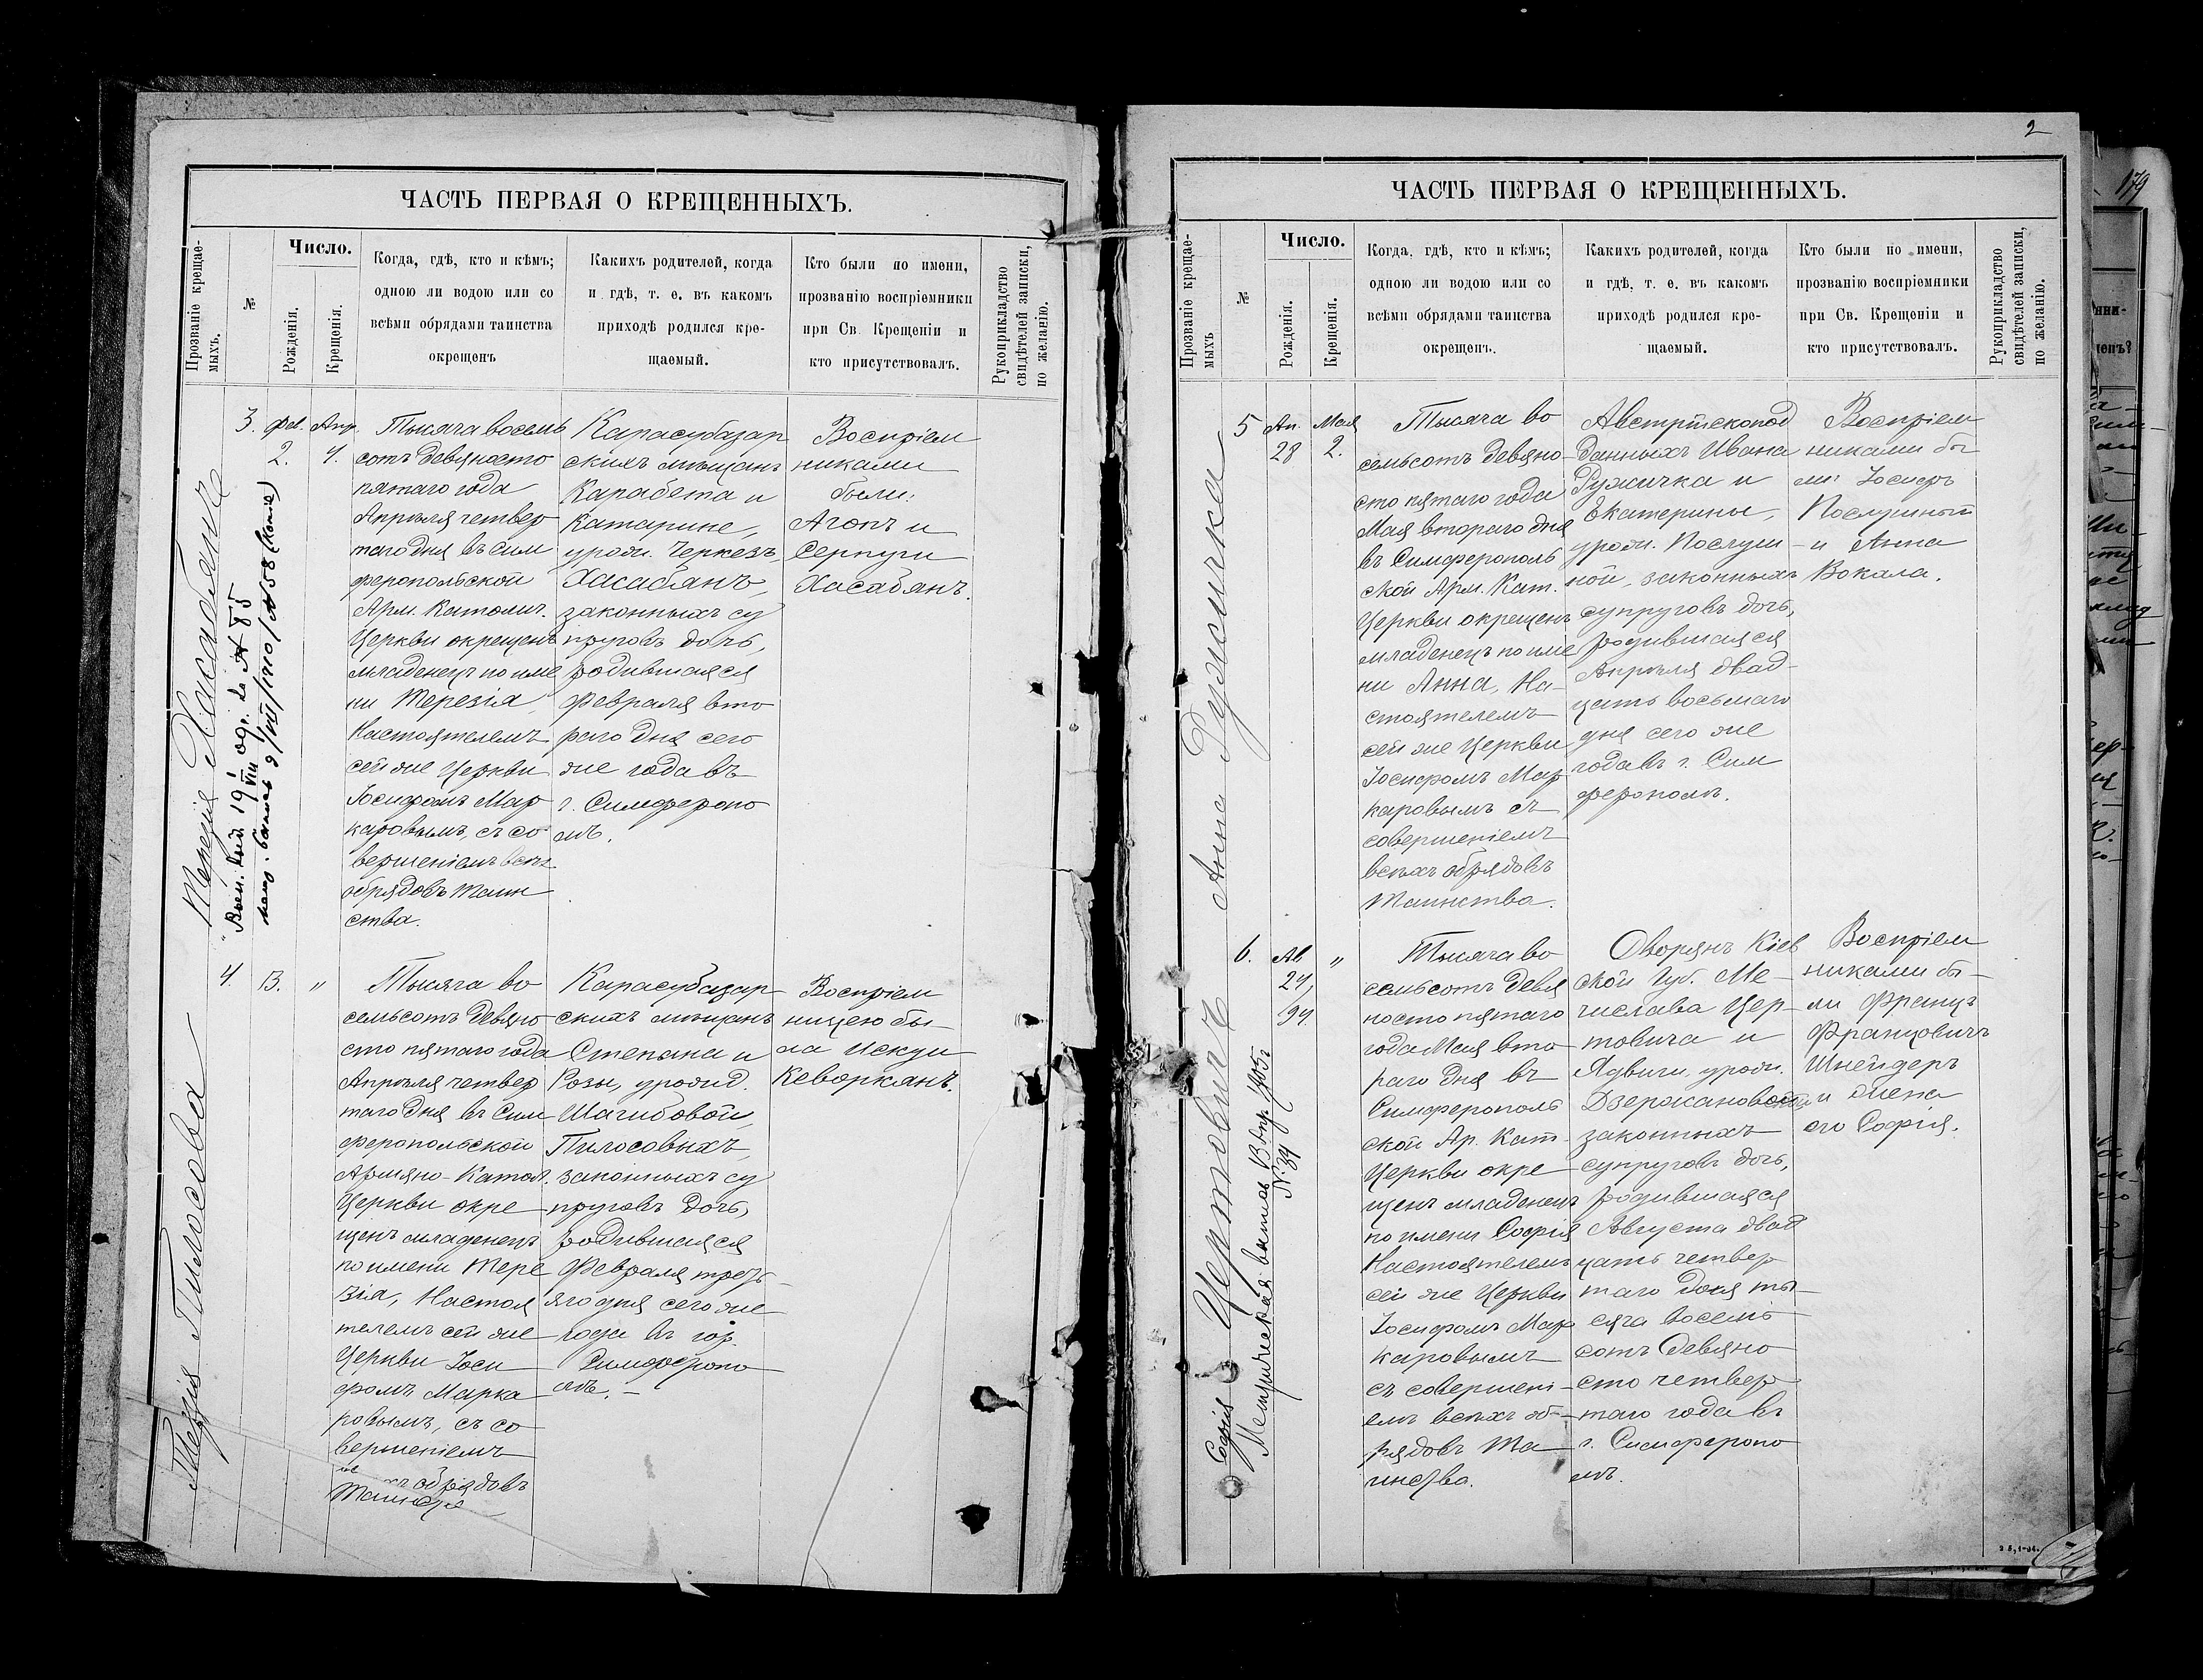 ЧАСТЬ ПЕРВАЯ О КРЕЩЕННЫХЪ.
Прозваніе крещае-
мыхъ.
№
Число.
Рожденія.
Крещенія.
Когда, гдѣ, кто и кѣмъ;
одною ли водою или со
всѣми обрядами таинства
окрещенъ
Каких​ъ родителей, когда
и гдѣ, т. е. въ какомъ
приходѣ родился кре-
щаемый.
Кто были по имени,
прозванію воспріемники
при Св. Крещеніи и
кто присутствовалъ.
Рукоприкладство
свидѣтелей записки,
по желанію.
Терезія Хасабянъ
3.
Фев.
2.
Апр.
4.
Тысяча восемь
сотъ девяносто
пятаго года
Апрѣля четвер
таго дня въ Сим
феропольской
Арм. Католич.
Церкви окрещенъ
младенецъ по име
ни Терезія,
Настоятелемъ
сей же Церкви
Іосифомъ Мар
каровымъ, съ со
вершеніемъ всѣхъ
обрядовъ Таин
ства.
Карасубазар
скихъ мѣщанъ
Карабета и
Катарине,
урожд. Черкезъ,
Хасабянъ,
законныхъ су
пруговъ дочь,
родившаяся
Февраля вто
раго дня сего
же года въ
г. Симферопо
лѣ.
Воспріем
никами
были:
Агопъ и
Серпуги
Хасабянъ.
Терезія Пилосова
4.
"
Тысяча во
семьсотъ девяно
сто пятаго года
Апрѣля четвер
таго дня въ Сим
феропольской
Армяно-Катол.
Церкви окре
щенъ младенецъ
по имени Тере
зія, Настоя
телемъ сей же
Церкви Іоси
фомъ Марка
ровымъ, съ со
вершеніемъ
обрядовъ
Карасубазар
скихъ мѣщанъ
Степана и
Розы, урожд.
Шагибовой,
Пилосовыхъ,
законныхъ су
пруговъ дочь,
родившаяся
Февраля треть
яго дня сего же
года въ гор.
Симферопо
лѣ. –
Воспріем
ницею бы-
ла Искуи
Кеворкянъ.
2
ЧАСТЬ ПЕРВАЯ О КРЕЩЕННЫХЪ.
Прозваніе крещае-
мыхъ
№
Число.
Рожденія.
Крещенія.
Когда, гдѣ, кто и кѣмъ;
одною ли водою или со
всѣми обрядами таинства
окрещенъ.
Какихъ родителей, когда
и гдѣ, т. е. въ какомъ
приходѣ родился кре-
щаемый.
Кто были по имени,
прозванію воспріемники
при Св. Крещеніи и
кто присутствовалъ.
Рукоприкладство
свидѣтелей записки,
по желанію.
Анна Ружичка
5
Ап.
28
Мая
2.
Тысяча во
семьсотъ девяно-
сто пятаго года
Мая втораго дня
въ Симферополь
ской Арм. Кат.
Церкви окрещенъ
младенецъ по име
ни Анна, На-
стоятелемъ
сей же Церкви
Іосифомъ Мар
каровымъ съ
совершеніемъ
всѣхъ обрядовъ
Таинства.
Австрійскопод
данныхъ Ивана
Ружичка и
Екатерины,
урожд. Послуш-
ной, законныхъ
супруговъ дочь,
родившаяся
Апрѣля двад-
цать восьмаго
дня сего же
года въ г. Сим
ферополѣ.
Воспріем
никами бы
ли: Іосифъ
Послушной
и Анна
Вокала.
Софія Цертовичъ
Метрическая выпись
№ 39
6.
Ав.
24,
94.
"
Тысяча во
семьсотъ девя
носто пятаго
года Мая вто-
раго дня въ
Симферополь
ской Ар. Кат.
Церкви окре
щенъ младенецъ
по имени Софія
Настоятелемъ
сей же Церкви
Іосифомъ Мар
каровымъ
съ совершені-
емъ всѣхъ об-
рядовъ Та-
инства.
Дворянъ Кіев
ской Губ. Ме-
числава Цер-
товича и
Ядвиги, урожд.
законныхъ
супруговъ дочь,
родившаяся
Августа двад
цать четвер
таго дня ты-
сяча восемь
сотъ девяно
сто четвер
таго года въ
г. Симферопо
лѣ.
Воспріем
никами бы-
ли Францъ
Францовичъ
Шнейдеръ
и жена
его Софія.
179